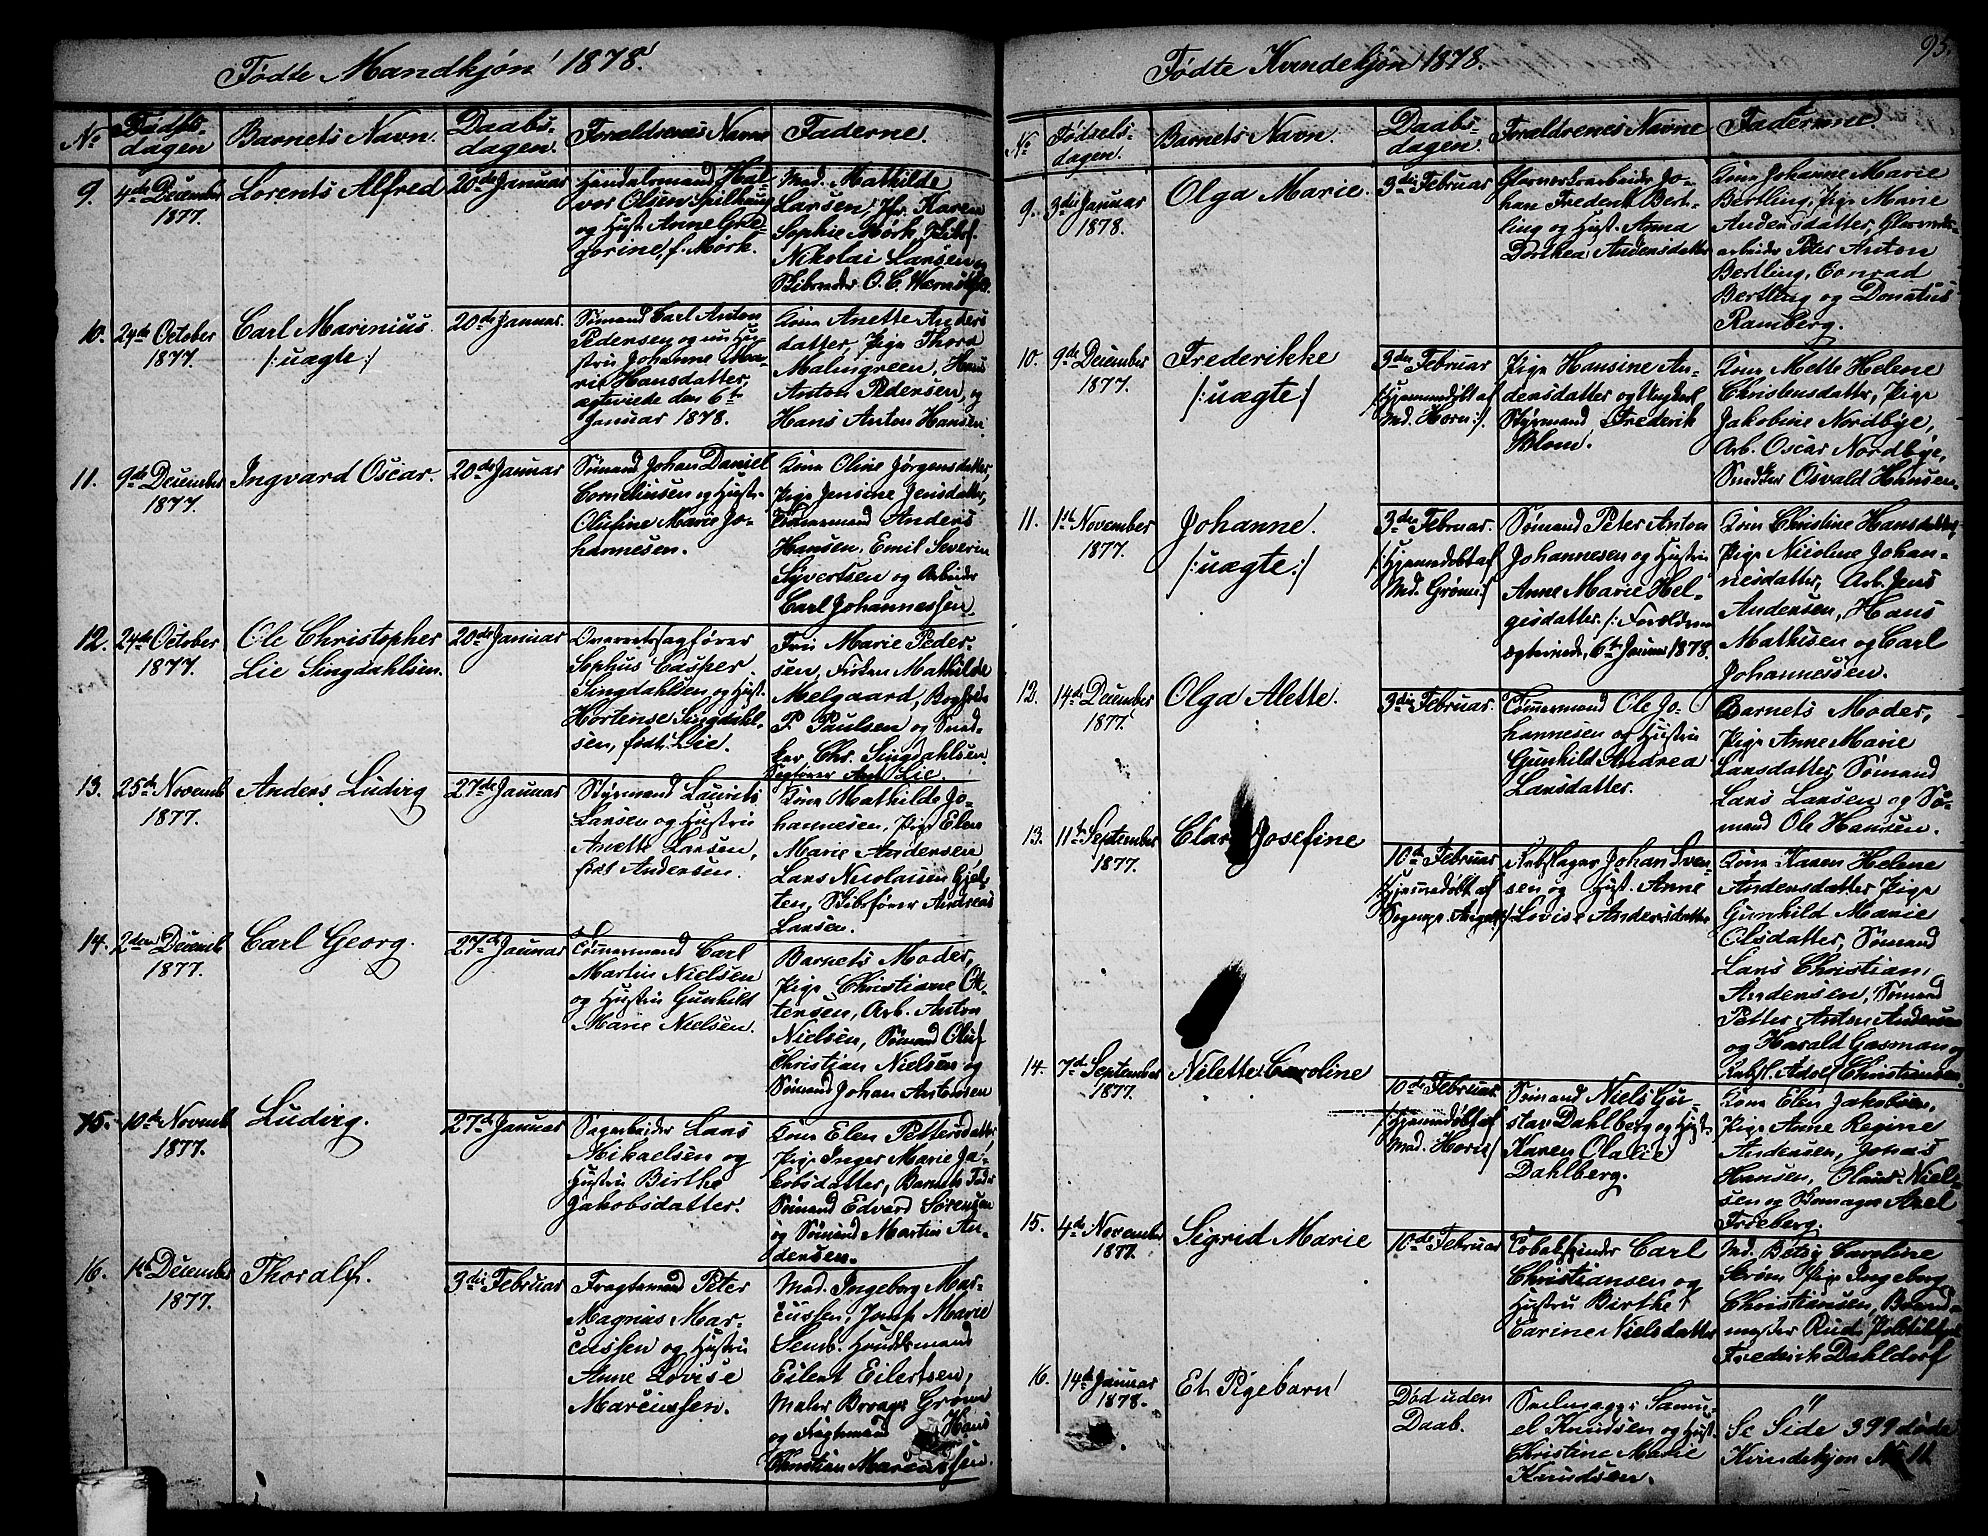 Fødte Mandkjøn 1878.
No
Fødsels-
dagen
Barnets Navn.
Daabs-
dagen.
Forældrenes Navne
Faderne.
9.
4de December
1877.
Lorents Alfred
20de Januar
Hal-
vor Olsen
og Hust. Anne Gre-
gorine, f. Mørk.
Mad. Mathilde
Larsen, Karen
Sophie Mørk,
Nikolai Larsen og
10.
October
1877.
Carl Marinius
/:uægte:/
20de Januar.
Sømand Carl Anton
Pedersen og nu Hu-
stru Johanne Ma-
rie Hansdatter,
ægteviede den 6te
Januar 1878.
Kone Anette Anders
datter, Pige Thora
Malmgreen, Hans
Anton Pedersen, og
Hans Anton Hansen.
11.
9de December
1877.
Ingvard Oscar.
20de Januar
Sømand Johan Daniel
Corneliusen og Hustr.
Olufine Marie Jo-
hannesen.
Kone Oline Jørgensdatter,
Pige Jensine Jensdatter,
Tømmermand Anders
Hansen, Emil Severin
Syvertsen og Arbeider
Carl Johannessen.
12.
24de October
1877.
Ole Christopher
Lie Singdahlsen.
20de Januar
Overretssagfører
Sophus Casper
Singdahlsen og Hust.
Hortense Singdahl-
sen, født Lie.
Fru Marie Peder-
sen, Frøken Mathilde
Melgaard,
P. Paulsen og Sned-
ker Chr. Singdahlsen
Sagfører Lie.
13.
25de Novemb
1877.
Anders Ludvig
27de Januar
Styrmand Laurits
Larsen og Hustru
Anette Larsen,
født Andersen.
Kone Mathilde Jo-
hannesen, Pige Elen
Marie Andersen,
Lars Nicolaisen
Skibsfører Andreas
Larsen.
14.
2den Decemb
1877.
Carl Georg.
27de Januar
Tømmermand Carl
Martin Nielsen
og Hustru Gunhild
Marie Nielsen.
Barnets Moder,
Pige Christiane Ot-
tersen, Arb. Anton
Nielsen, Sømand Oluf
Christian Nielsen og
Sømand Johan Antonsen
15.
10de Novemb
1877.
Ludvig.
27de Januar
Sagarbeider Lars
Mikaelsen og
Hustru Birthe
Jakobsdatter.
Kone Elen Pettersdatter
Pige Inger Marie Ja-
kobsdatter, Barnets Fader
Sømand Edvard Sørensen
og Sømand Martin An-
dersen.
16.
1ste December
1877.
Thoralf.
3die Februar
Fragtemand Peter
Magnus Mar-
cussen og Hustru
Anne Lovise
Marcussen.
Mad. Ingeborg Mar-
cussen, Marie
Semb.
Eilert Eilertsen,
Maler Grønn
og Fragtemand Hans
Christian Marcussen.
Fødte Kvindekjøn 1878.
95.
No
Fødsels-
dagen.
Barnets Navn.
Daabs-
dagen.
Forældrenes Navne
Fadderne.
9.
3die Januar
1878.
Olga Marie.
3die Februar
Glasværksarbeider Jo-
han Frederik Bert-
ling og Hust. Anna
Dorthea Andersdatter
Kone Johanne Marie
Bertling, Pige Marie
Andersdatter, Glasværks-
arbeider Peter Anton
Bertling, Conrad
Bertling og Donatus
Ramberg.
10.
9de December
1877.
Frederikke
/:uægte:/
3die Februar
/:Hjemmedøbt af
Mad. Horn:/
Pige Hansine An-
dersdatter og Ungkarl
Styrmand Frederik
Blom.
Kone Mette Helene
Christensdatter, Pige
Jakobine Nordbye,
Arb. Oscar Nordbye,
Snedker Osvald Hansen.
11.
1ste November
1877.
Johanne.
/:uægte:/
3die Februar.
/:Hjemmedøbt af
Md. Grønn:/
Sømand Peter Anton
Johannesen og Hustru
Anne Marie Hel-
gesdatter. /:Forældrene
ægteviede 6te Januar 1878.
Kone Christine Hansdatter,
Pige Nicoline Johan-
nesdatter, Arb. Jens
Andersen, Hans
Mathisen og Carl
Johannessen.
12.
14de December
1877.
Olga Alette.
3die Februar.
Tømmermand Ole Jo-
hannesen og Hustru
Gunhild Andrea
Larsdatter.
Barnets Moder,
Pige Anne Marie
Larsdatter, Sømand
Lars Larsen og Sø-
mand Ole Hansen.
13.
11te September
1877.
Clara Josefine
10de Februar
/:Hjemmedøbt af
Rebslager Johan Sven-
sen og Hust. Anne
Lovise Andersdatter
Kone Karen Helene
Andersdatter, Pige
Gunhild Marie
Olsdatter, Sømand
Lars Christian
Andersen, Sømand
Petter Anton Andersen
og Harald Gasman og
Rebsl. Adolf Christiansen.
14.
7de September
1877.
Nilette Caroline
10de Februar.
/:Hjemmedøbt af
Mad. Horn:/
Sømand Niels Gu-
stav Dahlberg og Hust.
Karen Olalie
Dahlberg.
Kone Elen Jakobsen,
Pige Anne Regine
Andersen, Jonas
Hansen, Olaus Niel-
sen og Axel
Frieberg.
15.
4de November
1877.
Sigrid Marie
10de Februar
Carl
Christiansen og
Hustru Birthe
Carine Nielsdatter
Md. Betsy Caroline
Strøm, Pige Ingeborg
Christiansen, Brand-
mester Rud,
Frederik Dahldorf
16.
14de Januar
1878.
Et Pigebarn
Død uden
Daab.
Seilmager Samu-
el Knudsen og Hust.
Christine Marie
Knudsen.
"
Se Side 399 døde
Kvindekjøn No 11